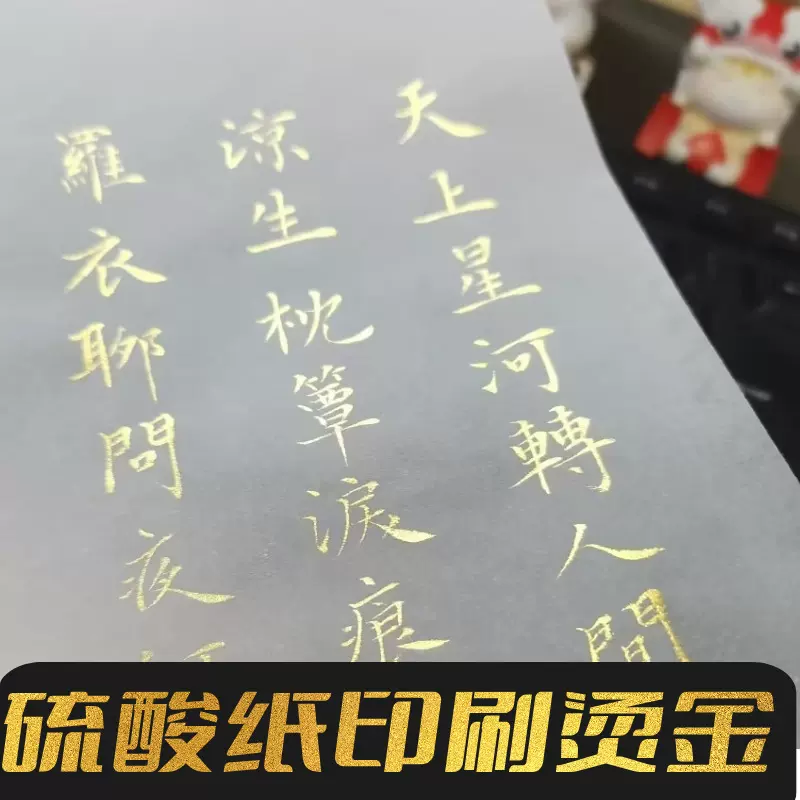 天上星河轉人間
涼生枕簟淚痕
羅衣聊問夜
硫酸纸印刷烫金